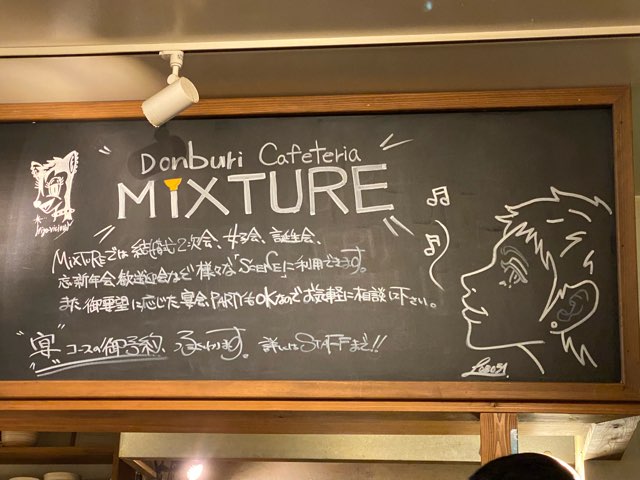 Donburi Cafeteria
MiXTURE
MiXTUREでは 結婚式2次会、女子会、誕生会、
忘新年会、歓送迎会など 様々な「SCENE」に利用できます。
また、御要望に応じた宴会、PARTYもOKなのでお気軽に相談下さい。
"宴" コースの御予約、うけたまわります。 詳しくはSTAFFまで!!